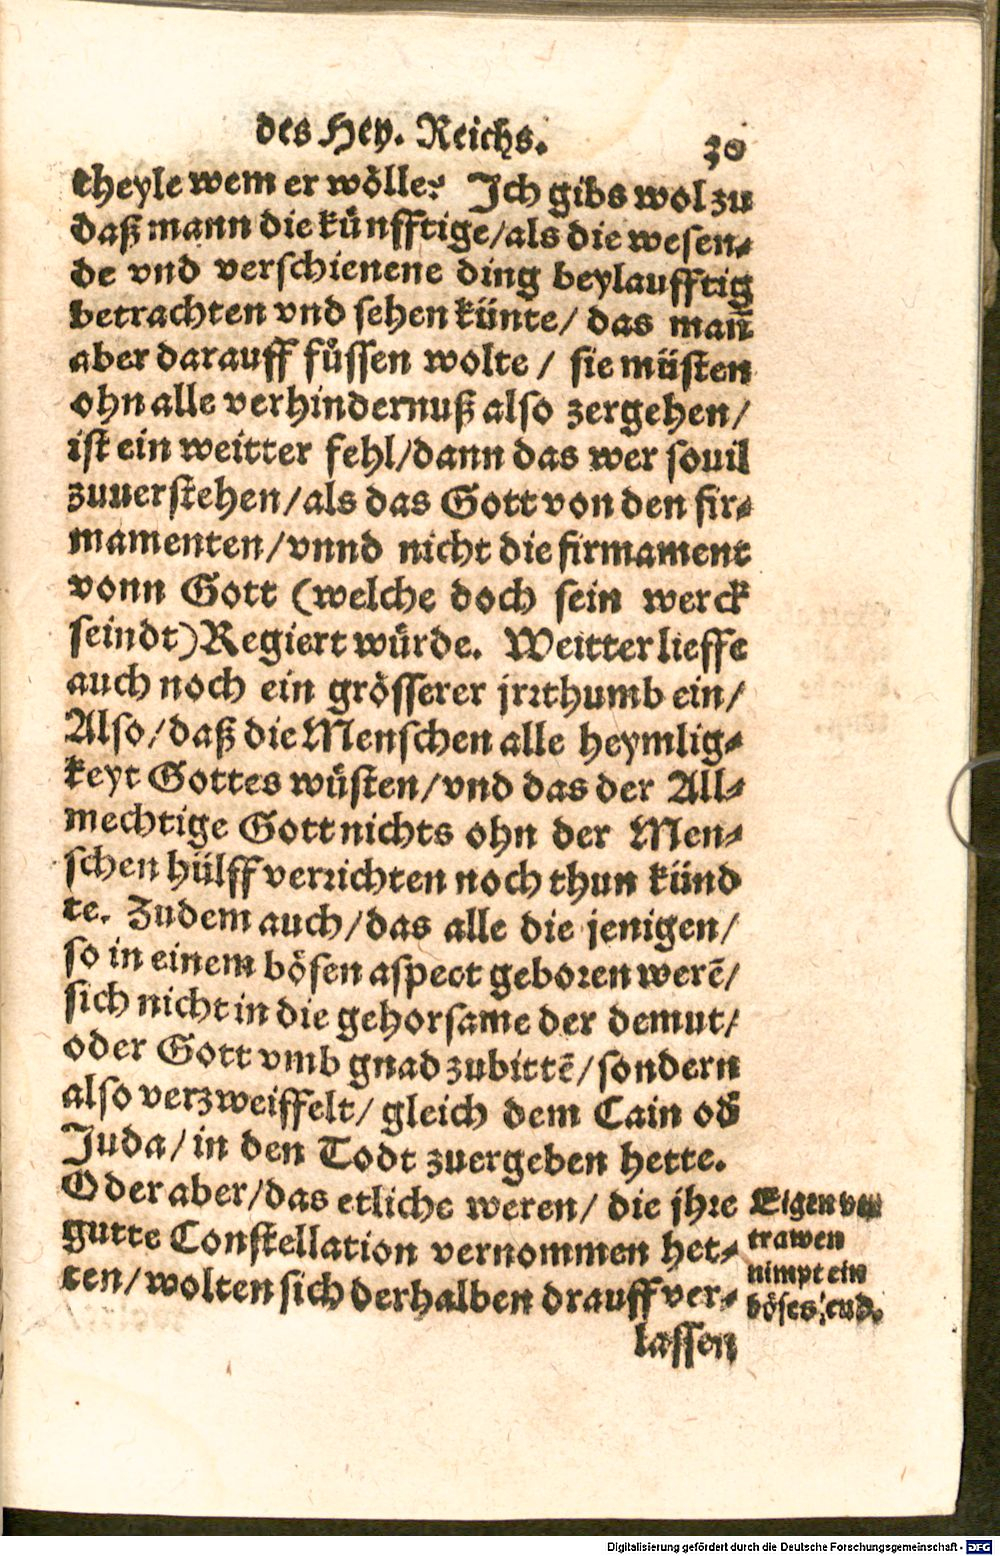 des Hey. Reichs.
30
theyle wem er wölle? Ich gibs wol zu
daß mann die künfftige/als die wesen⸗
de vnd verschienene ding beylaufftig
betrachten vnd sehen künte/ das man̄
aber darauff füssen wolte / sie müsten
ohn alle verhindernuß also zergehen/
ist ein weitter fehl/dann das wer souil
zuuerstehen/als das Gott von den fir⸗
mamenten/vnnd nicht die firmament
vonn Gott (welche doch sein werck
seindt)Regiert würde. Weitter lieffe
auch noch ein grösserer jrrthumb ein/
Also/daß die Menschen alle heymlig⸗
keyt Gottes wüsten/vnd das der All⸗
mechtige Gott nichts ohn der Men⸗
schen hülff verrichten noch thun künd
te. Zudem auch/das alle die jenigen/
so in einem bösen aspect geboren werē/
sich nicht in die gehorsame der demut/
oder Gott vmb gnad zubittē/sondern
also verzweiffelt/ gleich dem Cain od̄
Juda/in den Todt zuergeben hette.
Oder aber/das etliche weren/ die jhre
gutte Constellation vernommen het⸗
ten/wolten sich derhalben drauff ver⸗
lassen
Eigen ver
trawen
nimpt ein
böses end.
Digitalisierung gefördert durch die Deutsche Forschungsgemeinschaft - DFG